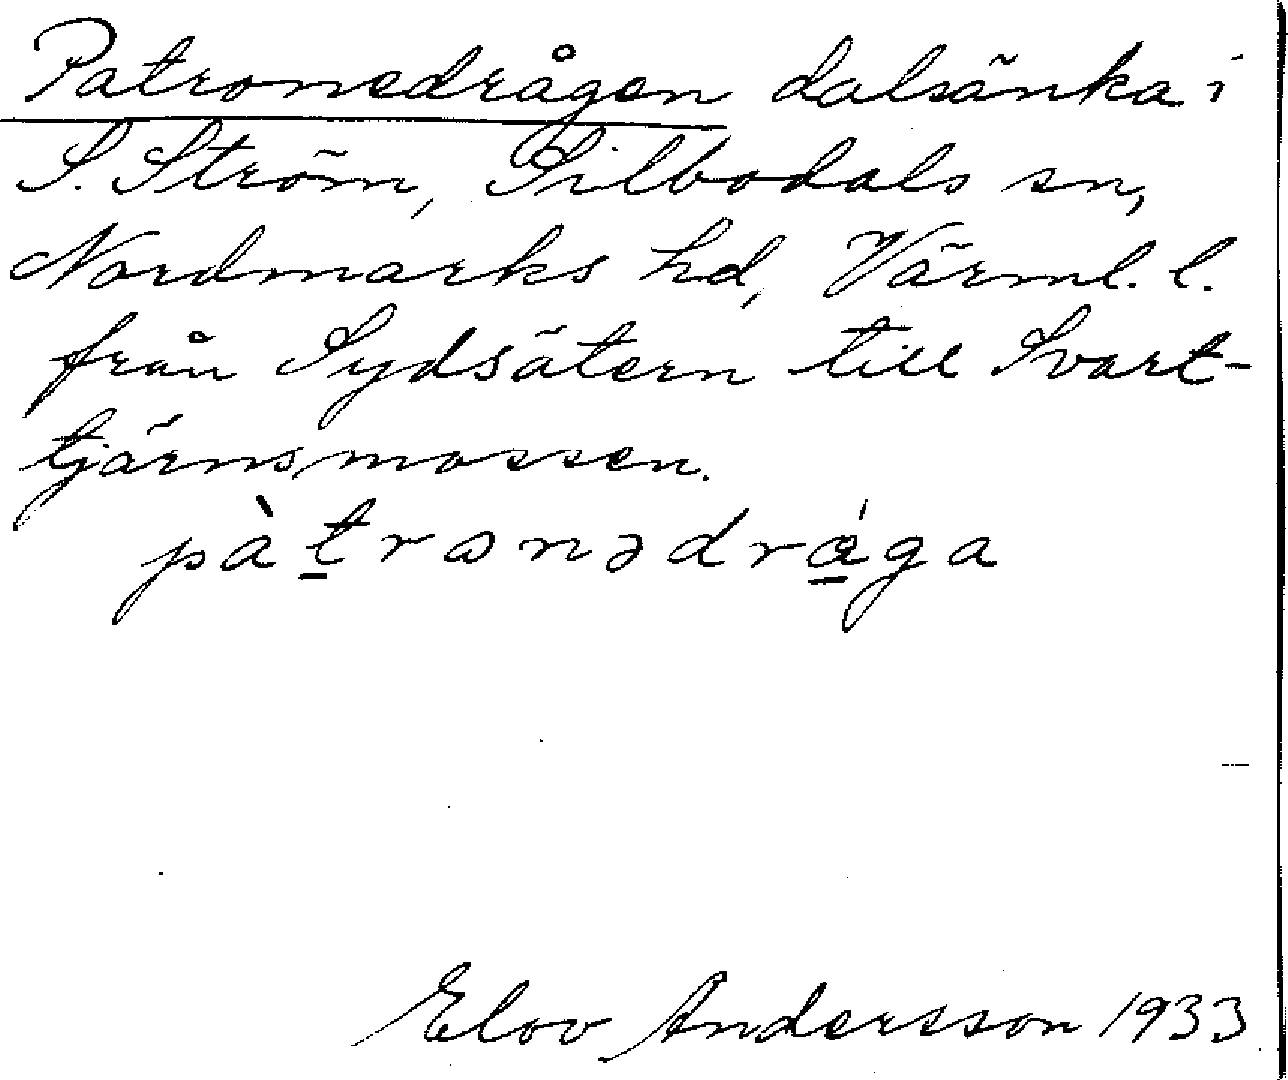 Patronedrågen dalsänka i
S. Ström, Silbodals sn,
Nordmarks hd, Värml. l.
från Sydsätern till Svart-
tjärnsmossen.
pàt̲rɷnədrá̲ga
Elov Andersson 1933